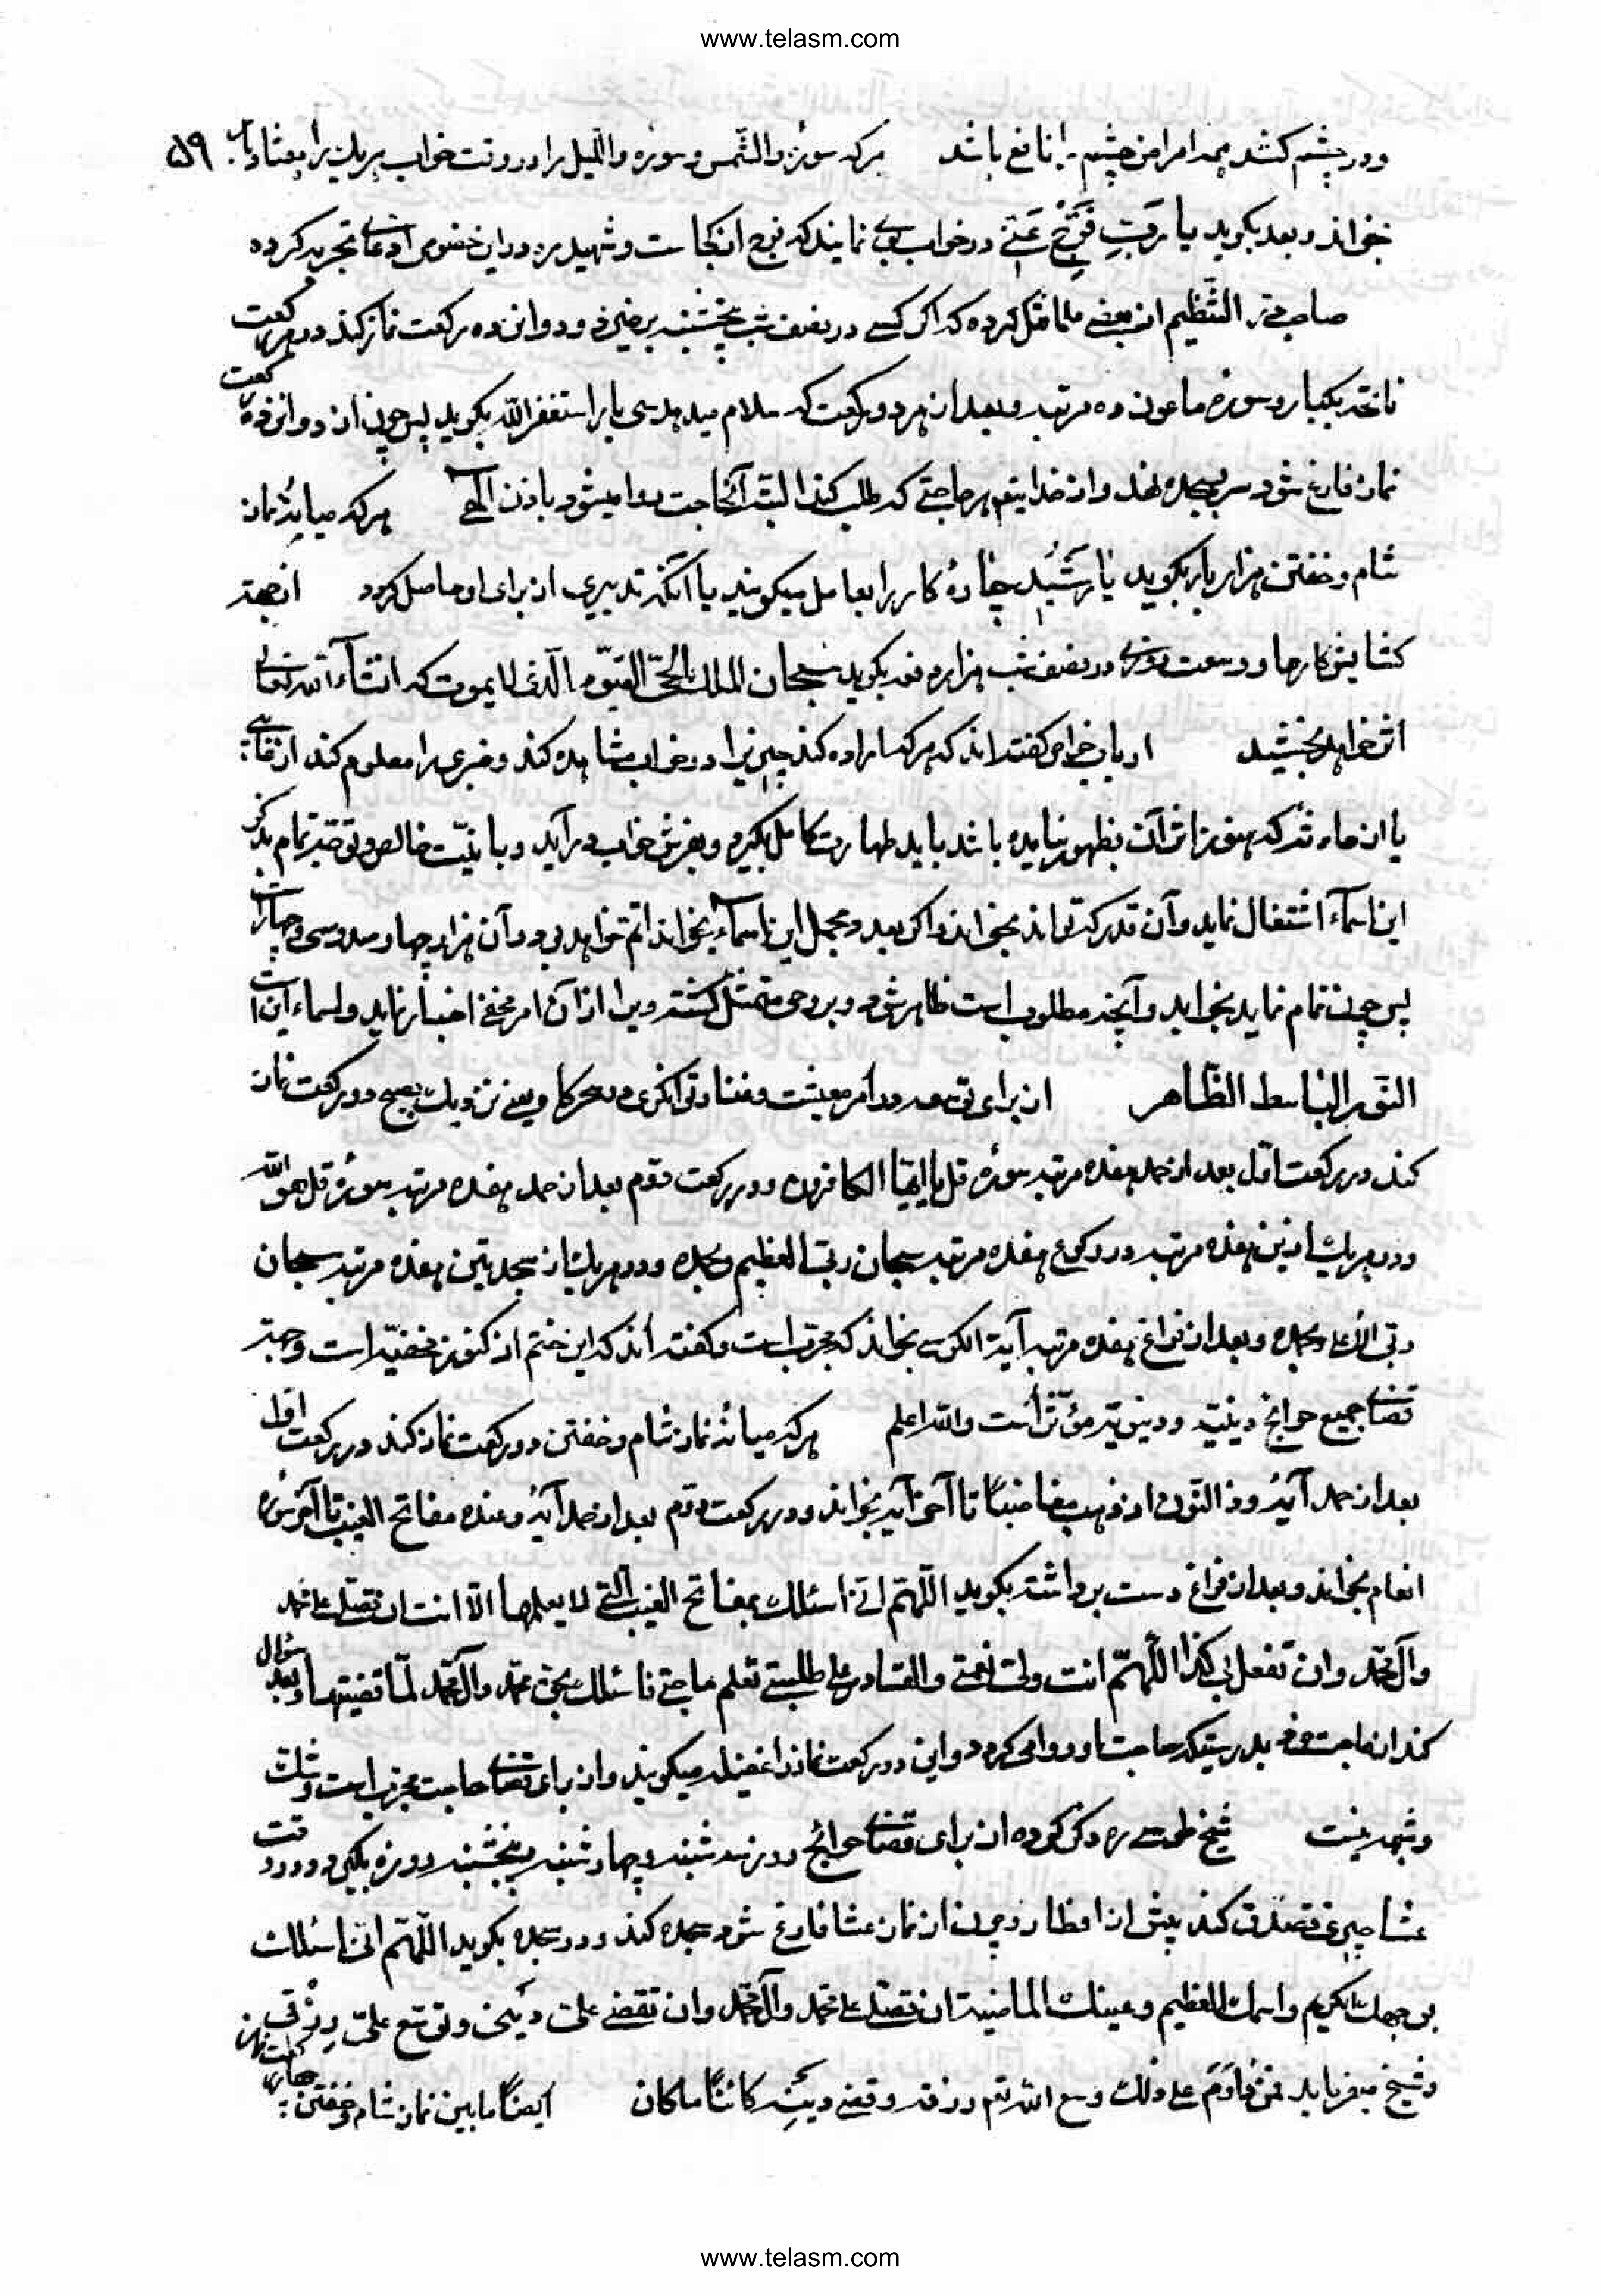 www.telasm.com
ودر چشم کشد همه امراض چشم را نافع باشد هرکه سورهٔ والشّمس و سوره واللیل را در وقت خواب هریک را هفتاد بار ۵۹
بخواند و بعد بگوید یا رَبِّ فَرِّجْ عَنّی در خواب بوی نمایند که فرج از کجاست و شهید ره در این خصوص ادعای تجربه کرده
صاحب درّ النّظیم از بعضی علما نقل کرده که اگر کسی در نصف شب پنجشنبه برخیزد و دوازده رکعت نماز کند در هر رکعت
فاتحه یکبار و سوره ماعون ده مرتبه و بعد از هر دو رکعت که سلام میدهد سی بار استغفر الله بگوید پس چون از دوازده رکعت
نماز فارغ شود سر بسجده نهد و از خدایتعم هر حاجتی که طلب کند البتّه آنحاجت روا میشود باذن الهی هرکه میانهٔ نماز
شام و خفتن هزار بار بگوید یا رَشیدُ چارهٔ کار را بعامل میگویند یا آنکه تدبیری از برای او حاصل گردد از جهة
کشایش کارها و وسعت روزی در نصف شب هزار دفعه بگوید سبحان الملک الحیّ القیّوم الّذی لا یموت که انشآء الله تعالی
اثر خواهد بخشید ارباب خواص گفته‌اند که هرکه اراده کند چیزیرا در خواب مشاهده کند و خبری را معلوم کند از غایب
یا از حادثه که هنوز اثر آن بظهور نیامده باشد باید طهارت کامل بگیرد و بفرش خواب درآید و با نیّت خالص و توجّه تمام بذکر
این اسمآء اشتغال نماید و آن قدر که تواند بخواند و اگر بعدد مجمل این اسمآء بخواند اتمّ خواهد بود و آن هزار چهار صد و سی و چهار است
پس چون تمام نماید بخوابد و آنچه مطلوب است ظاهر شود و بروحی متمثّل گشته ویرا از آن امر مخفی اخبار نماید و اسماء این است
النّور الباسط الظّاهر از برای توسعه در امر معیشت و غنا و توانگری در سحرگاه یعنی نزدیک بصبح دو رکعت نماز
کند در رکعت اوّل بعد از حمد هفده مرتبه سورهٔ قل یا ایّها الکافرون و در رکعت دوّم بعد از حمد هفده مرتبه سورهٔ قل هو الله
و در هریک از این هفده مرتبه در رکوع هفده مرتبه سبحان ربّی العظیم و بحمده و در هریک از سجدتین هفده مرتبه سبحان
ربّی الاعلی و بحمده و بعد از فراغ هفده مرتبه آیة الکرسی بخواند که مجرّب است و گفته‌اند که این ختم از کنوز مخفیّه است و جهة
قضای جمیع حوائج دینیّه و دنیویّه مؤثّر است والله اعلم هرکه میانهٔ نماز شام و خفتن دو رکعت نماز کند در رکعت اوّل
بعد از حمد آیهٔ وذا النّون اذ ذهب مغاضبًا تا آخر آیه بخواند و در رکعت دوّم بعد از حمد آیهٔ و عنده مفاتح الغیب تا آخر سوره
انعام بخواند و بعد از فراغ دست برداشته بگوید اللّهمّ انّی اسئلک بمفاتح الغیب الّتی لا یعلمها الّا انت ان تصلّی علی محمّد
وآل محمّد وان تفعل بی کذا اللّهمّ انت ولیّ نعمتی والقادر علی طلبتی تعلم حاجتی فاسئلک بحقّ محمّد وآل محمّد لمّا قضیتها و بعد سؤال
کند از حاجت خود بدرستیکه حاجت او روا میگردد و این دو رکعت نماز را غفیله میگویند و از برای قضای حاجت مجرّب است و شکّ
و شبهه نیست شیخ طوسی ره ذکر کرده از برای قضای حوائج روز سه شنبه و چهارشنبه و پنجشنبه روزه بگیرد و در وقت
عشا چیزی تصدّق کند پیش از افطار و چون از نماز عشا فارغ شود سجده کند و در سجده بگوید اللّهمّ انّی اسئلک
بوجهک الکریم واسمک العظیم وعینک الماضیة ان تصلّی علی محمّد وآل محمّد وان تقضی علیّ دینی وتوسّع علیّ رزقی
و شیخ میفرماید فمن داوم علی ذلک وسع الله تعم رزقه وقضی دینه کائنًا ما کان ایضًا مابین نماز شام و خفتن چهار رکعت نماز
www.telasm.com